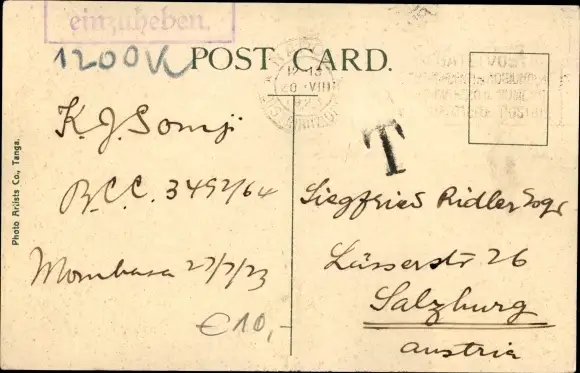 einzuheben.
1200K
POST CARD.
20 VIII
T
K. J. Somji
B.C.C. 3492/64
Mombasa 27/7/23
€10,-
Photo Artists Co., Tanga.
Siegfried Ridler Esqr
Lasserstr 26
Salzburg
austria